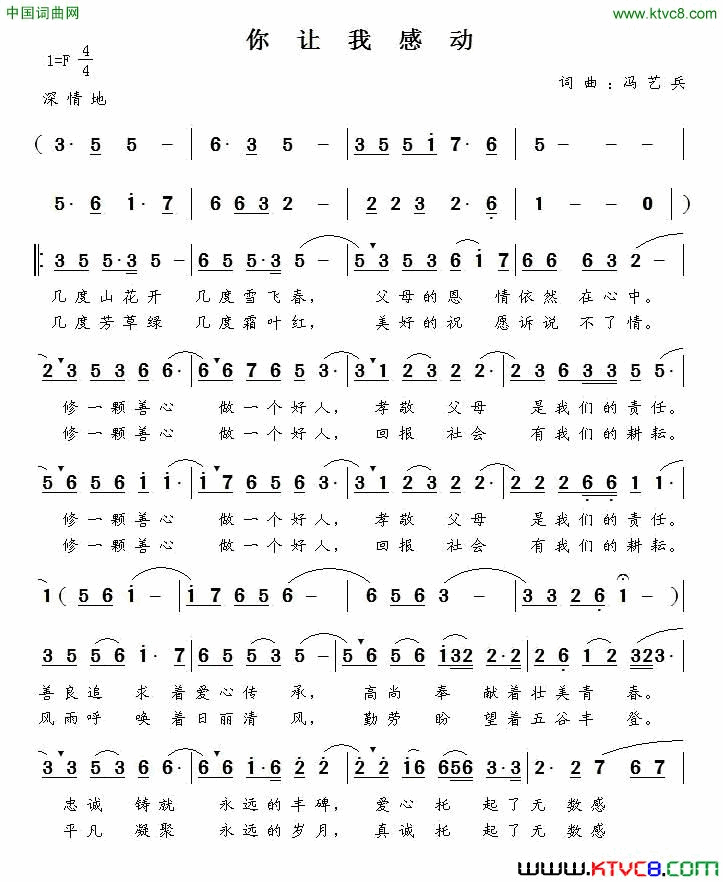 中国词曲网
www.ktvc8.com
你 让 我 感 动
1=F 4/4
词 曲 : 冯 艺 兵
深 情 地
( 3· 5 5 – | 6· 3 5 – | 3 5 5 i 7· 6 | 5 – – – |
5· 6 i· 7 | 6 6 3 2 – | 2 2 3 2· 6 | 1 – – 0 | )
‖: 3 5 5·3 5 – | 6 5 5·3 5 – | 5 3 5 3 6 i 7 | 6 6 6 3 2 – |
几 度 山 花 开 几 度 雪 飞 春， 父 母 的 恩 情 依 然 在 心 中。
几 度 芳 草 绿 几 度 霜 叶 红， 美 好 的 祝 愿 诉 说 不 了 情。
2 3 5 3 6 6· | 6 6 7 6 5 3· | 3 1 2 3 2 2· | 2 3 6 3 3 5 5· |
修 一 颗 善 心 做 一 个 好 人， 孝 敬 父 母 是 我 们 的 责 任。
修 一 颗 善 心 做 一 个 好 人， 回 报 社 会 有 我 们 的 耕 耘。
5 6 5 6 i i· | i 7 6 5 6 3· | 3 1 2 3 2 2· | 2 2 2 6 6 1 1· |
修 一 颗 善 心 做 一 个 好 人， 孝 敬 父 母 是 我 们 的 责 任。
修 一 颗 善 心 做 一 个 好 人， 回 报 社 会 有 我 们 的 耕 耘。
1 ( 5 6 i – | i 7 6 5 6 – | 6 5 6 3 – | 3 3 2 6 1 – ) |
3 5 5 6 i· 7 | 6 5 5 3 5 – | 5 6 5 6 i32 2·2 | 2 6 1 2 323· |
善 良 追 求 着 爱 心 传 承， 高 尚 奉 献 着 壮 美 青 春。
风 雨 呼 唤 着 日 丽 清 风， 勤 劳 盼 望 着 五 谷 丰 登。
3 3 5 3 5 6· | 6 6 i·6 2 2 | 2 2 i6 656 3·3 | 2· 2 7 6 7 |
忠 诚 铸 就 永 远 的 丰 碑， 爱 心 托 起 了 无 数 感
平 凡 凝 聚 永 远 的 岁 月， 真 诚 托 起 了 无 数 感
www.KTVC8.com